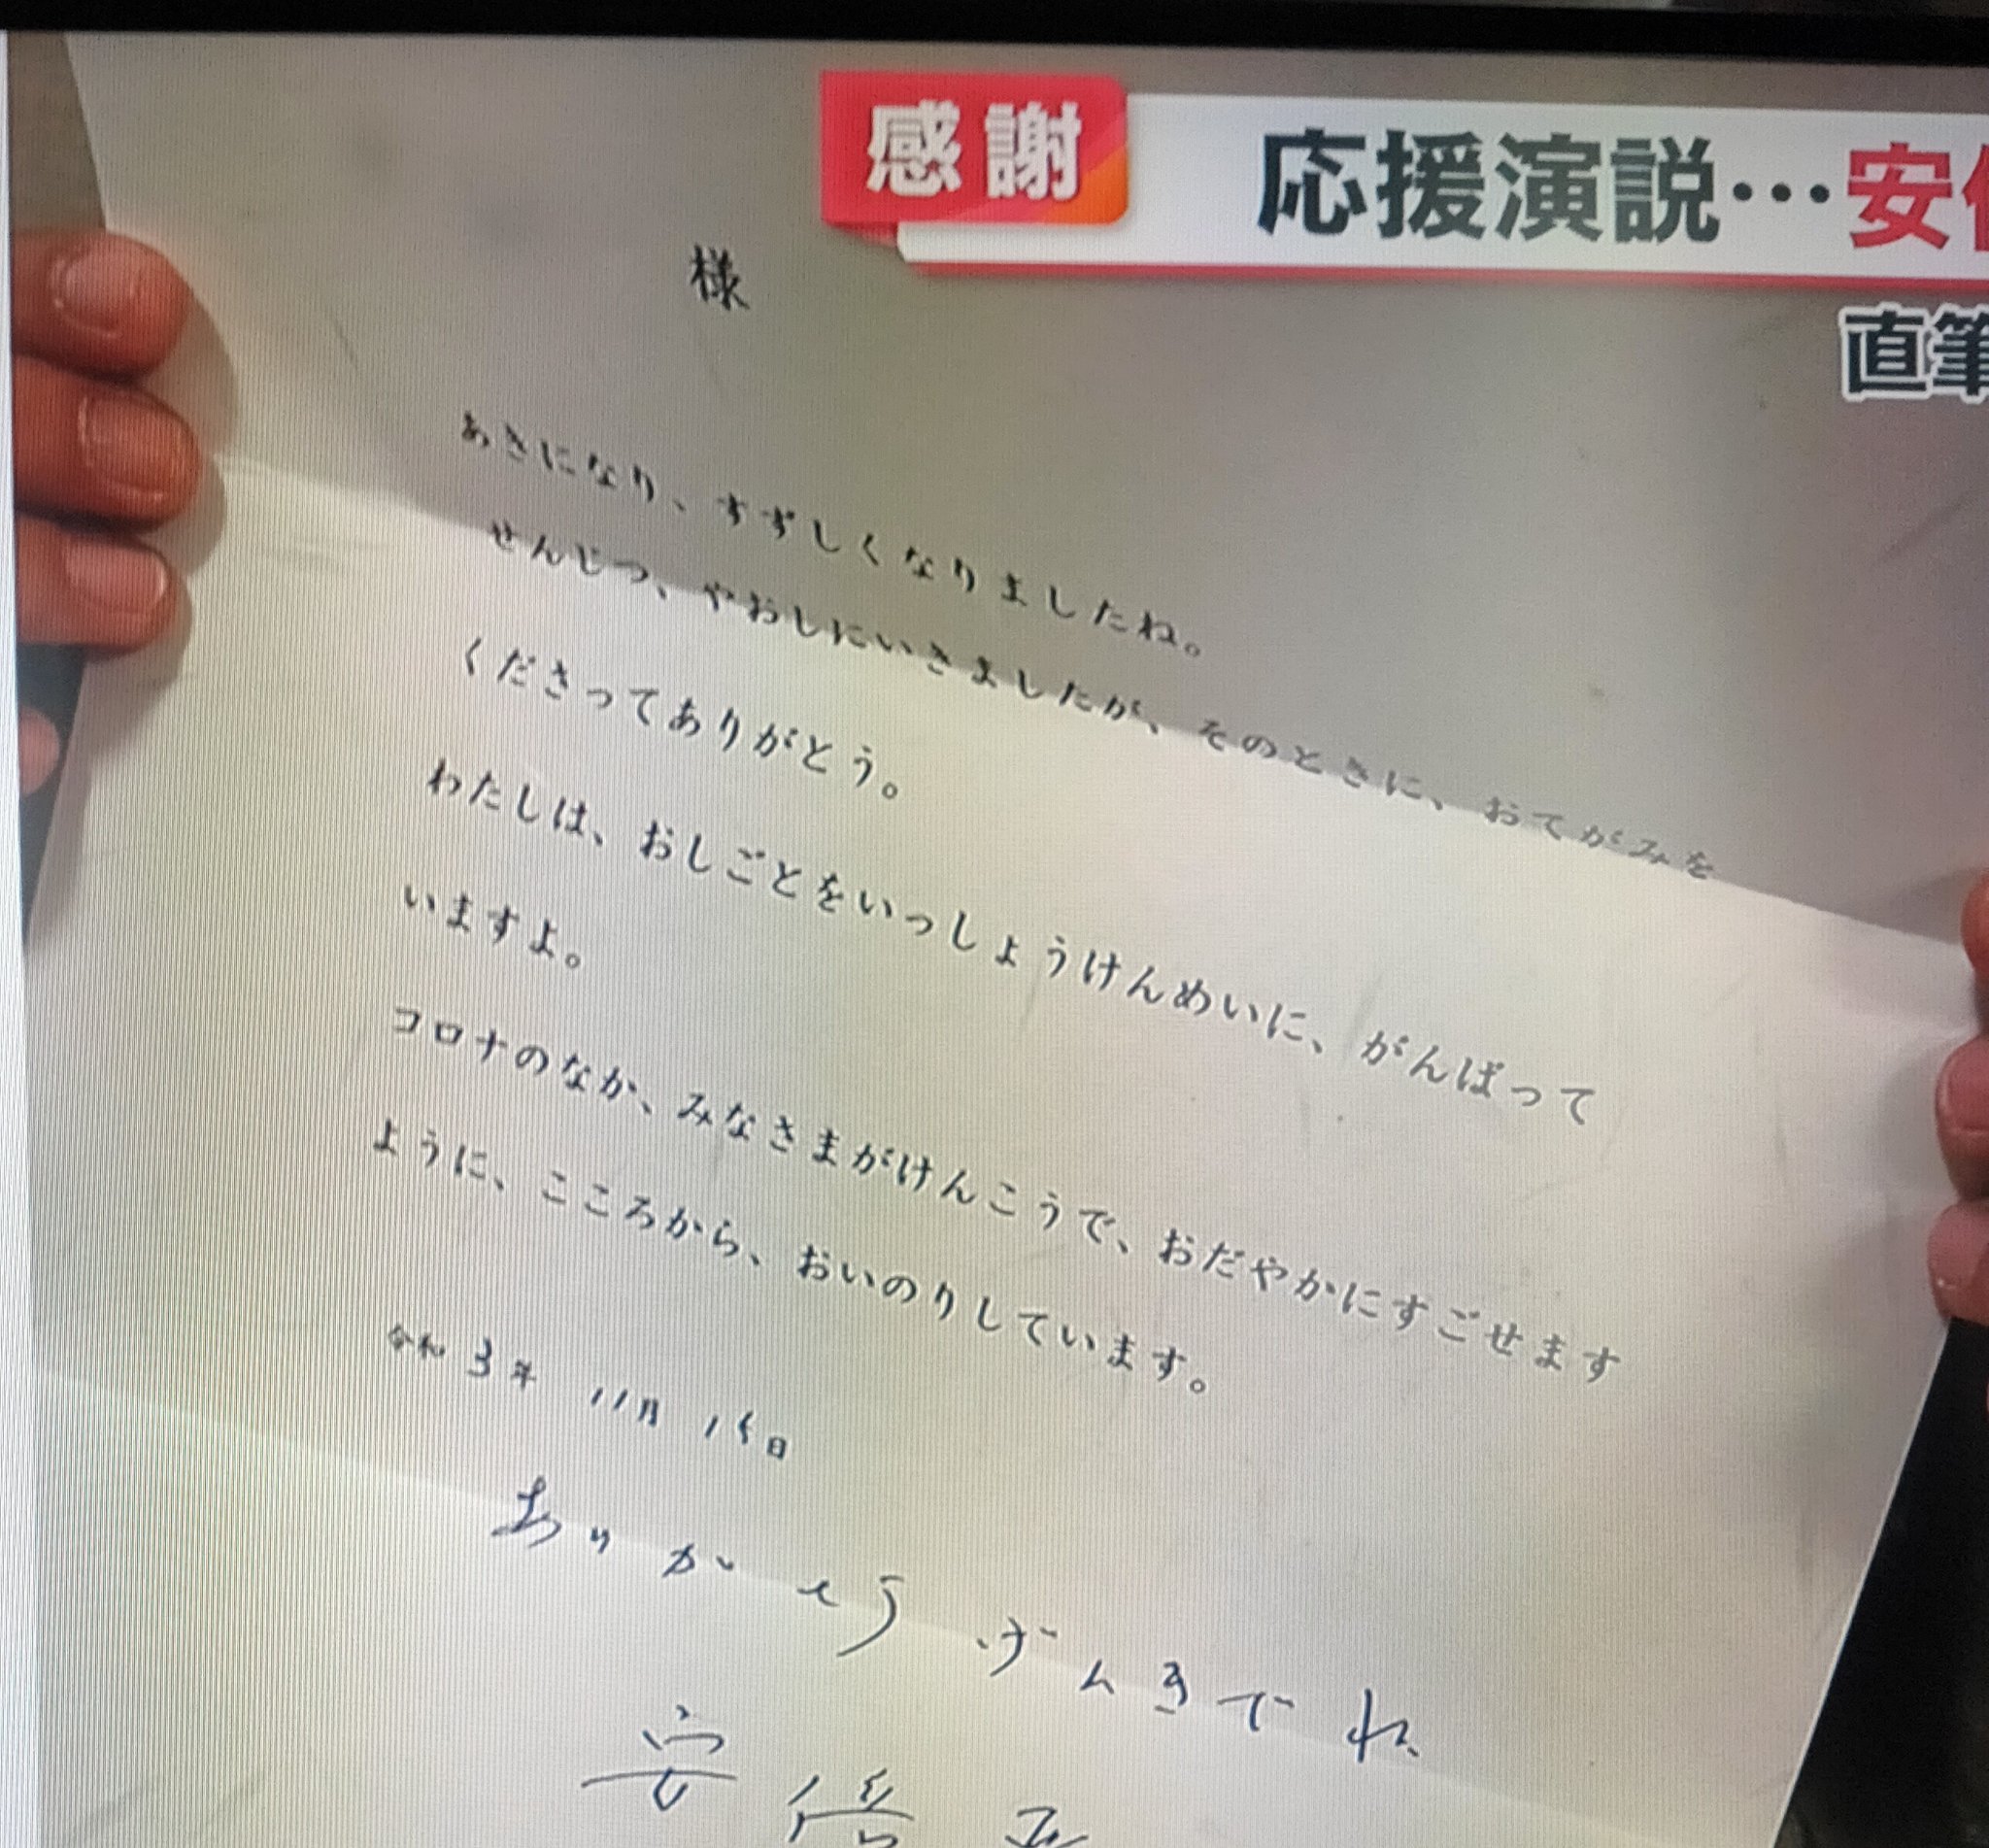 感謝
応援演説…安
直筆
様
あきになり、すずしくなりましたね。
せんじつ、やおしにいきましたが、そのときに、おてがみを
くださってありがとう。
わたしは、おしごとをいっしょうけんめいに、がんばって
いますよ。
コロナのなか、みなさまがけんこうで、おだやかにすごせます
ように、こころから、おいのりしています。
令和3年 11月 日
ありがとう げんきでね
安倍